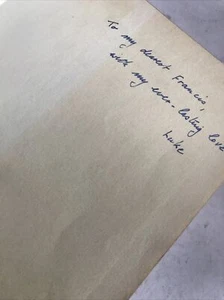 To my dearest Francis,
with my ever-lasting love
Luke